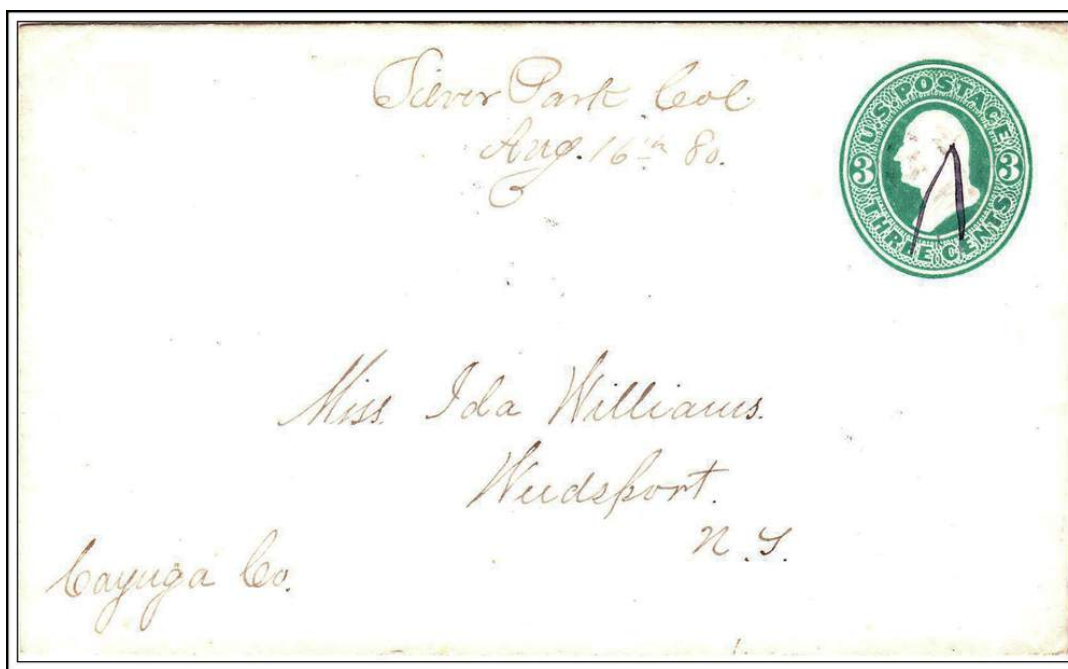 Silver Park Col.
Aug. 16th 80.
U.S. POSTAGE
3 3
THREE CENTS
Miss. Ida Williams.
Weedsport.
N. Y.
Cayuga Co.